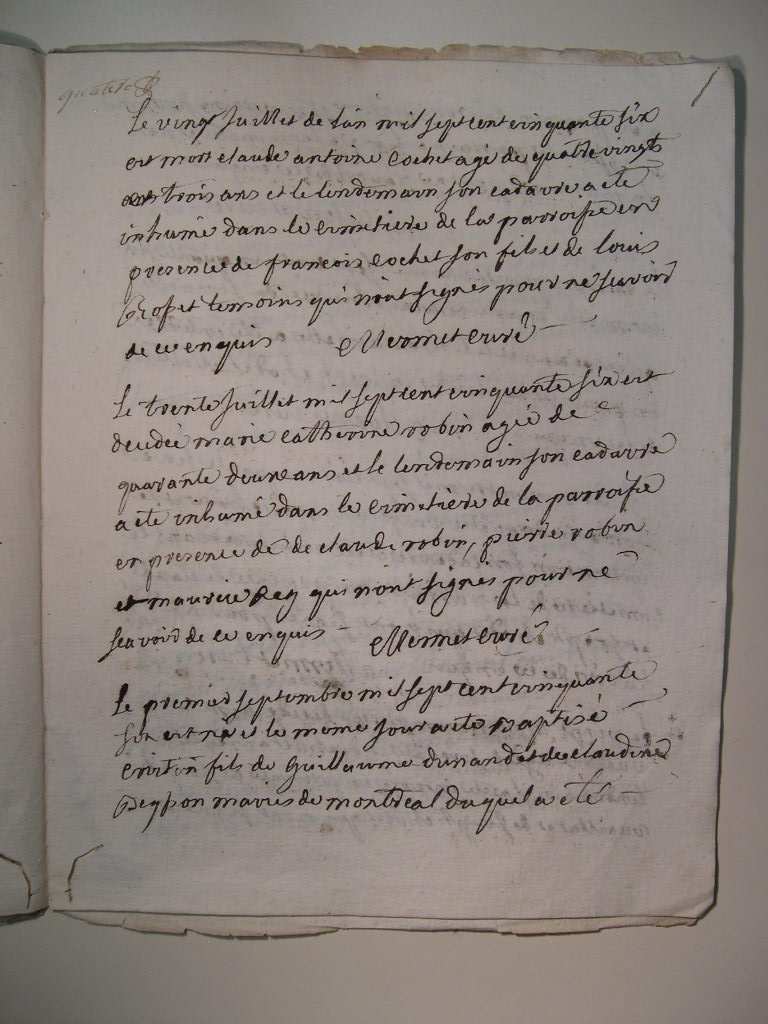 Le vingt Juillet de lan mil sept cent cinquante six
est mort claude antoine cochet agé de quatre vingts
trois ans et le lendemain son cadavre a eté
inhumé dans le cimetiere de la parroisse en
presence de francois cochet son fils et de louis
temoins qui n'ont signés pour ne scavoir
de ce enquis Mermet curé
Le trente Juillet mil sept cent cinquante six est
decedée marie catherine robin agée de
quarante deux ans et le lendemain son cadavre
a eté inhumé dans le cimetière de la parroisse
en presence de de claude robin, pierre robin
et maurice Rey qui n'ont signés pour ne
scavoir de ce enquis Mermet curé
Le premier septembre mil sept cent cinquante
six est né et le meme jour a eté Baptisé
fils de Guillaume dunand et de claudine
mariés de montreal duquel a eté